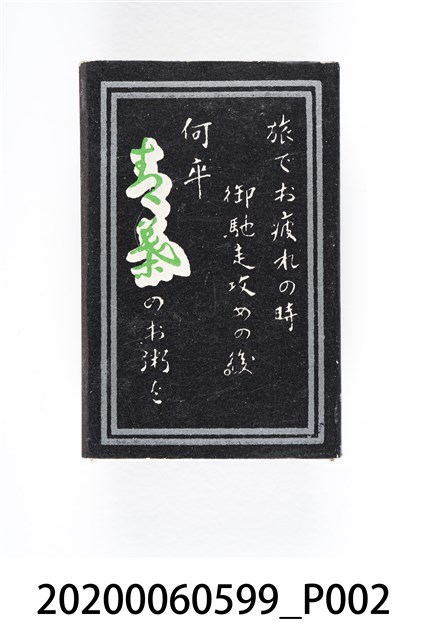 旅でお疲れの時
御馳走攻めの後
何卒
青葉のお粥を
20200060599_P002